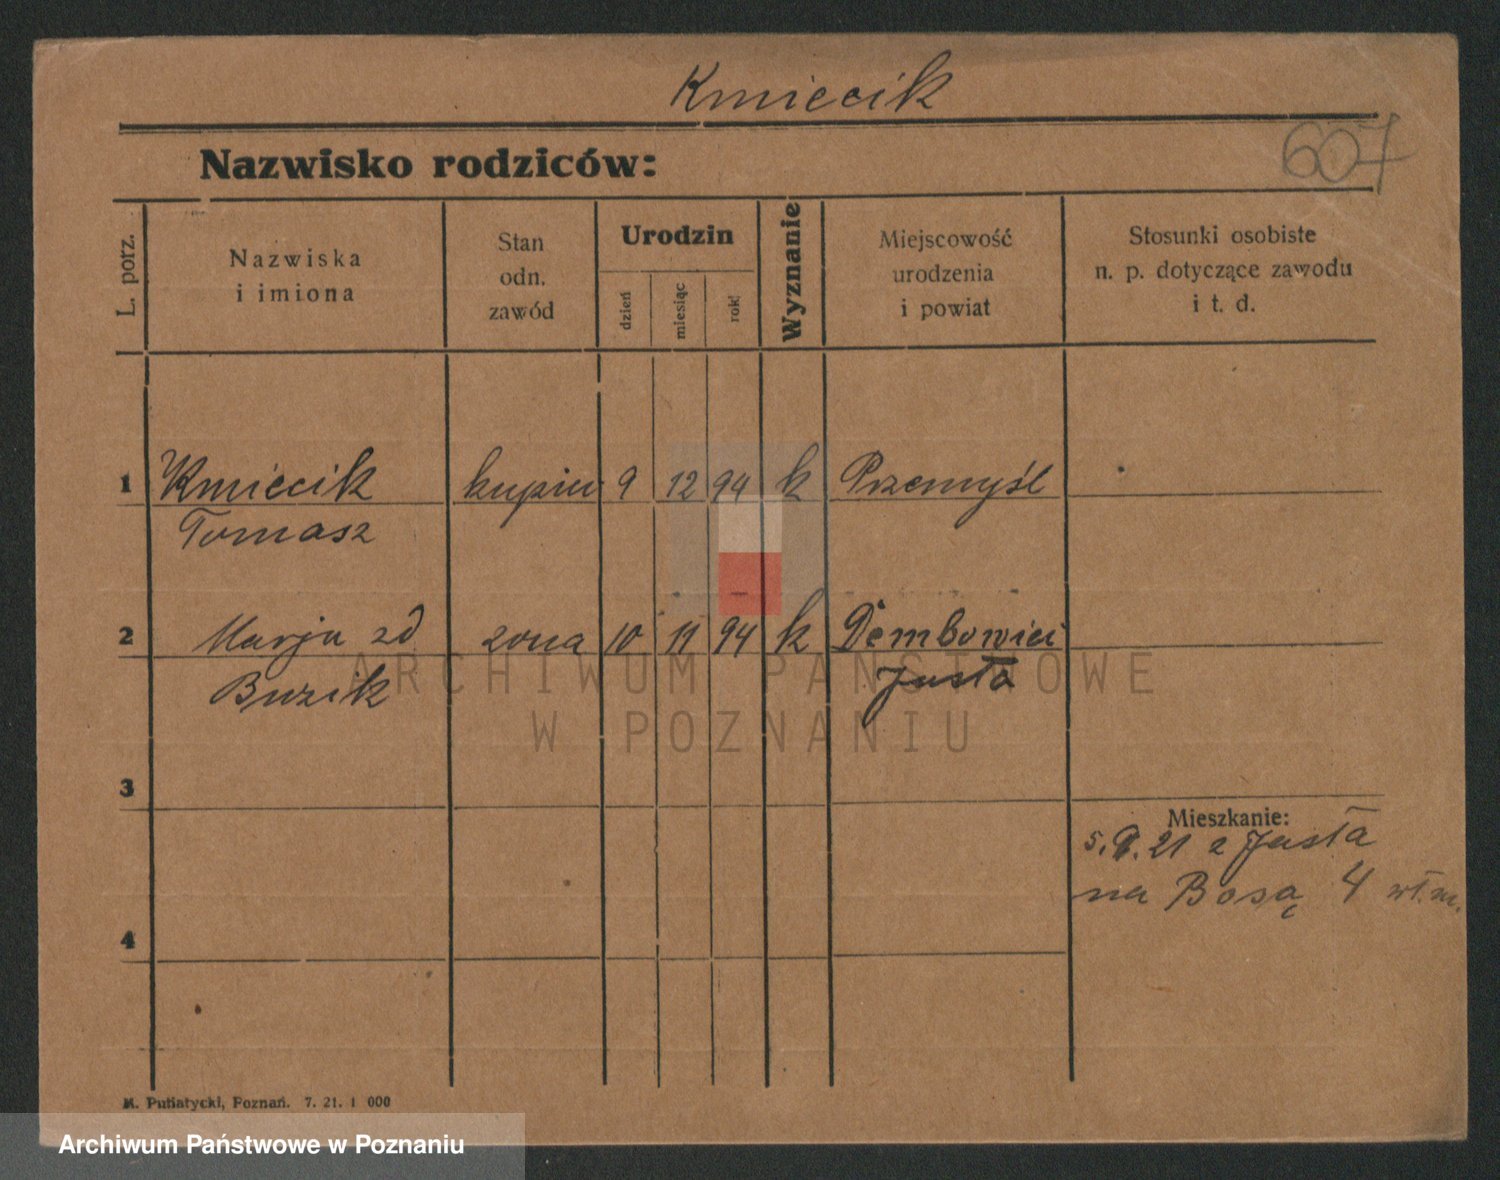 Kmiecik
607
Nazwisko rodziców:
L. porz.
Nazwiska
i imiona
Stan
odn.
zawód
Urodzin
dzień
miesiąc
rok
Wyznanie
Miejscowość
urodzenia
i powiat
Stosunki osobiste
n. p. dotyczące zawodu
i t. d.
1 Kmiecik kupiec 9 12 94 k Przemyśl
Tomasz
2 Marja zd zona 10 11 94 k
Buzik Jasła
3
Mieszkanie:
5.9.21 z Jasła
na Bosą 4 wł.m.
4
M. Putiatycki, Poznań. 7. 21. 1 000
ARCHIWUM PAŃSTWOWE
W POZNANIU
Archiwum Państwowe w Poznaniu